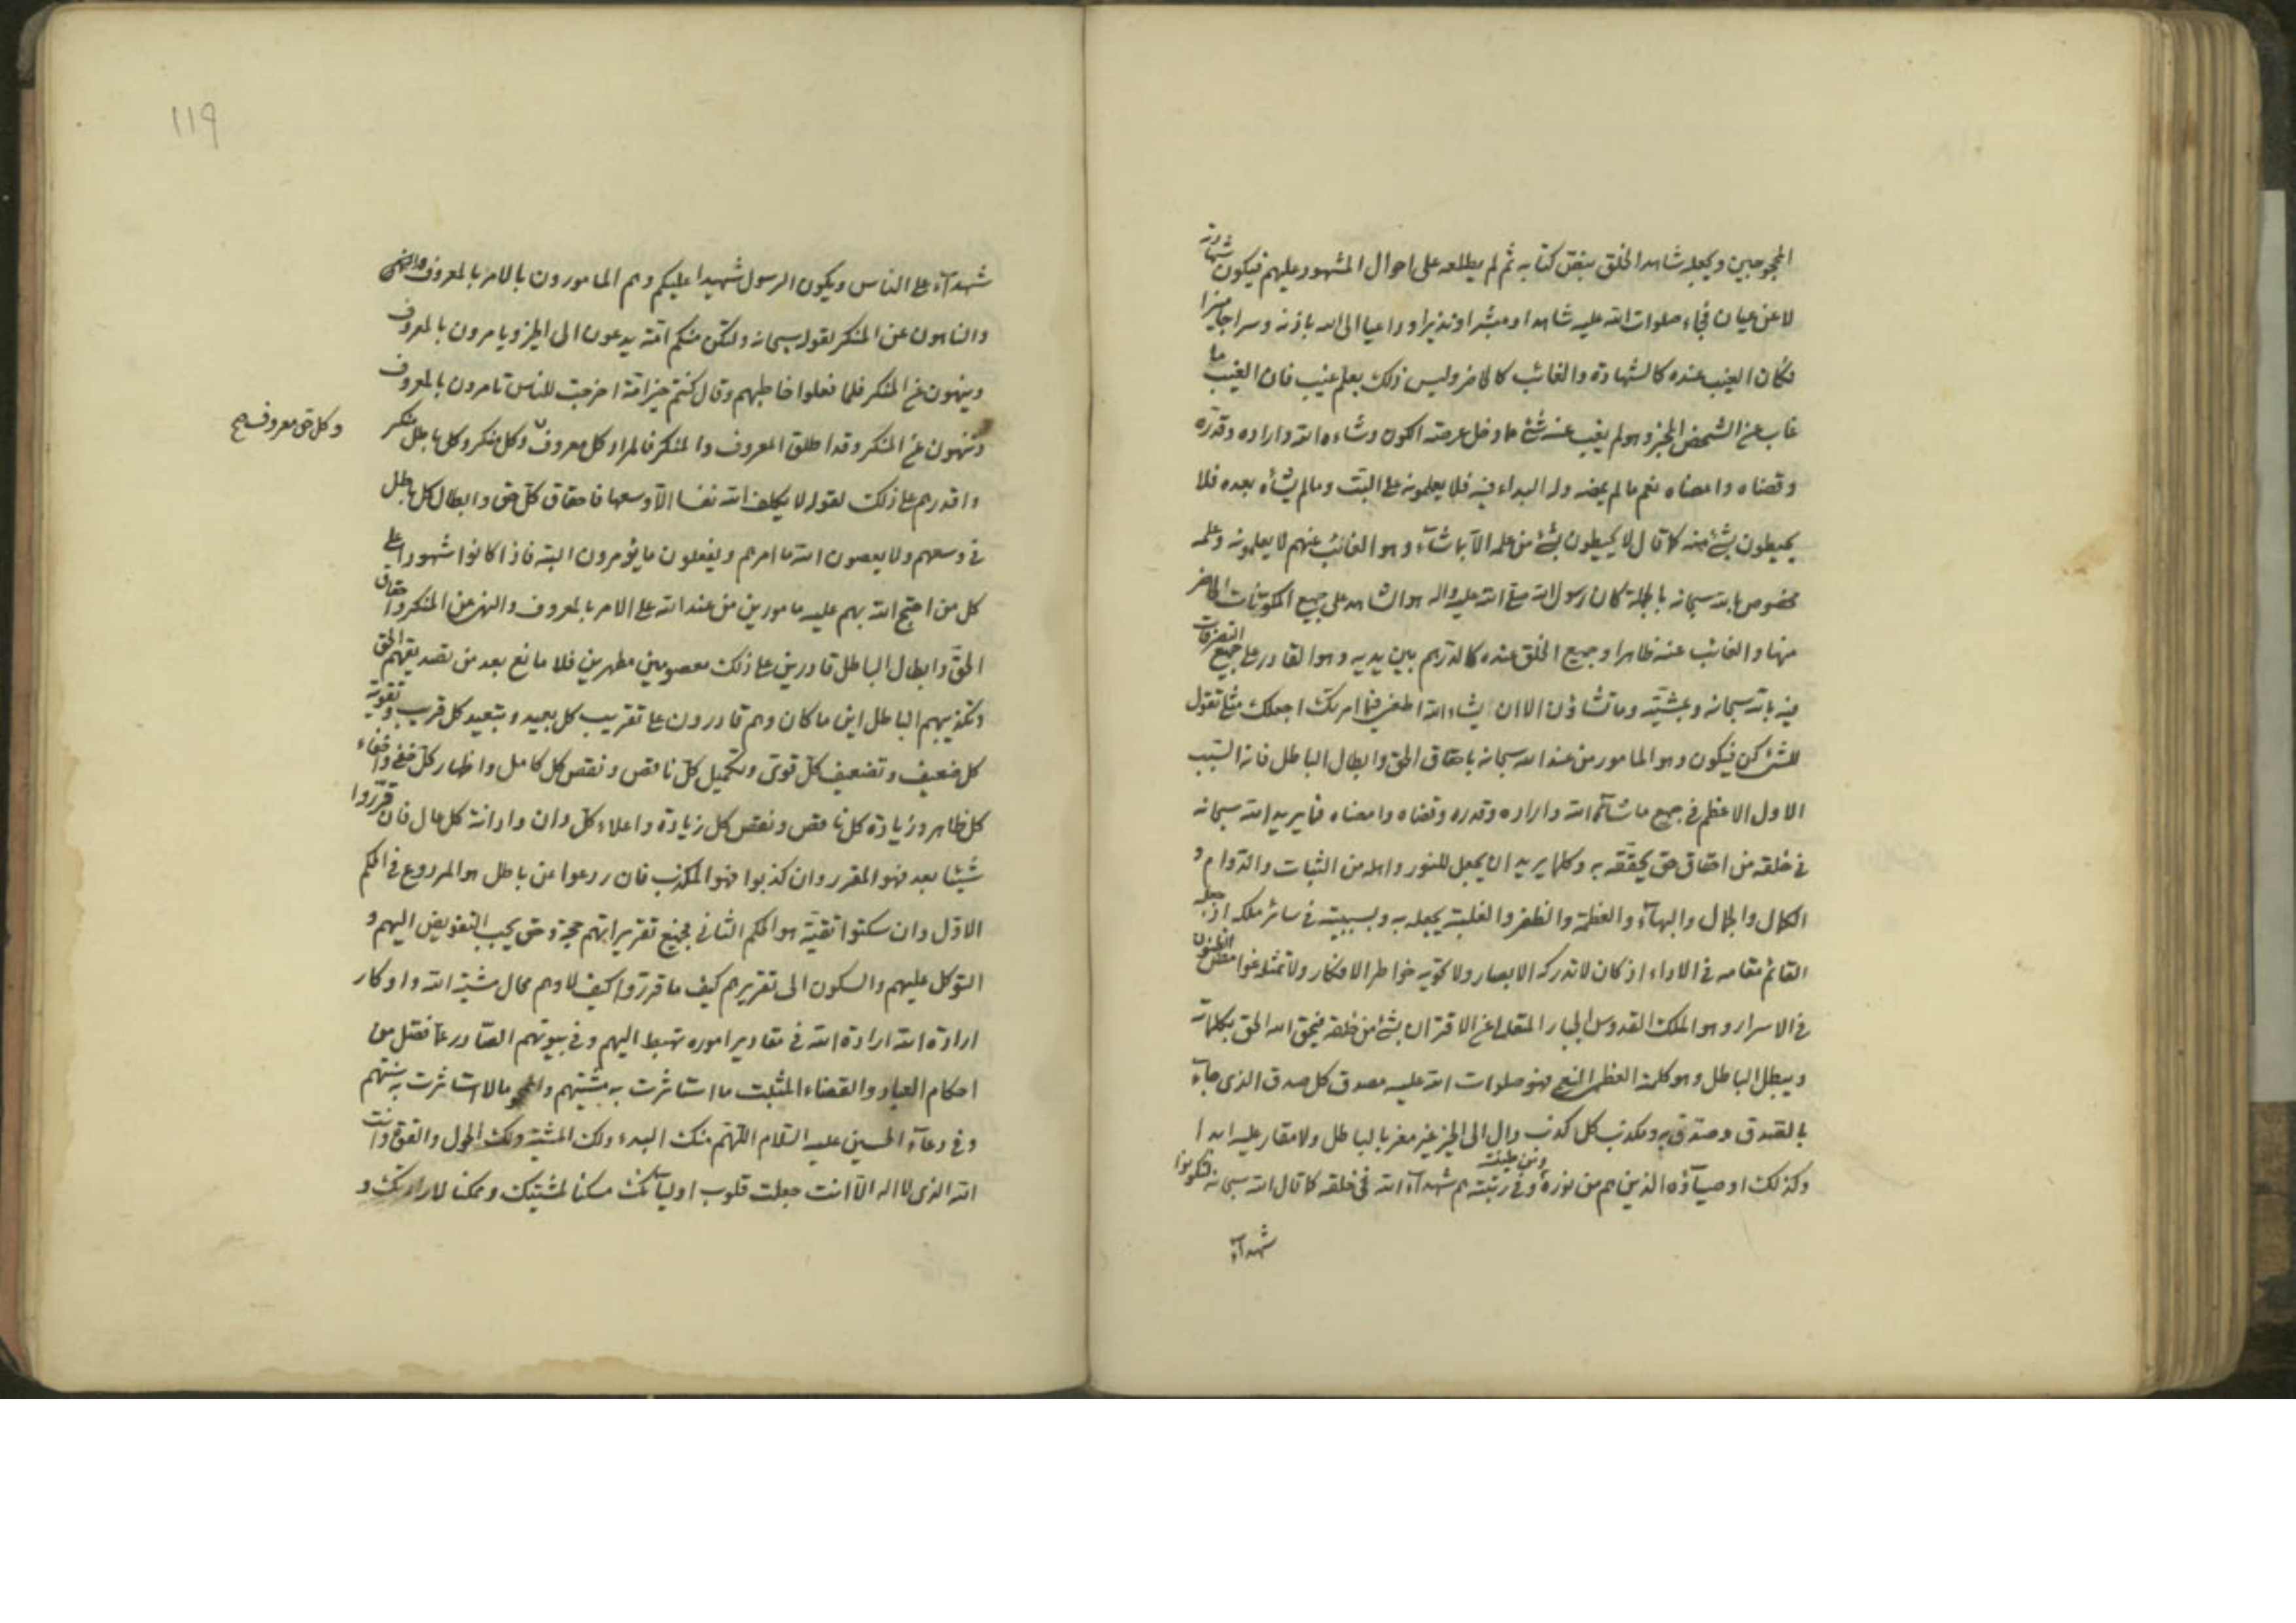 المحجوبين ويجعله شاهد الخلق بنص كتابه ثم لم يطلعه على احوال المشهود عليهم فيكون شهادته
لا عن عيان فجاء صلوات الله عليه شاهدا ومبشرا ونذيرا وداعيا الى الله باذنه وسراجا منيرا
فكان الغيب عنده كالشهادة والغائب كالحاضر وليس ذلك بعلم غيب فان الغيب ما
غاب عن الشخص المخبر وهو لم يغب عنه شئ مما دخل عرصة الكون وشاءه الله واراده وقدره
وقضاه وامضاه نعم ما لم يمضه وله البداء فيه فلا يعلمونه على البت وما لم يشأه بعده فلا
يحيطون بشئ منه كما قال لا يحيطون بشئ من علمه الا بما شآء وهو الغائب عنهم لا يعلمونه وعلمه
مخصوص بالله سبحانه بالجملة كان رسول الله صلى الله عليه واله هو الشاهد على جميع المكونات الحاضر
منها والغائب عنه ظاهرا وجميع الخلق عنده كالدرهم بين يديه وهو القادر على جميع التصرفات
فيه بالله سبحانه وبمشيته وما تشاؤن الا ان يشاء الله اطعني فيما امرتك اجعلك مثلي تقول
للشئ كن فيكون وهو المامور من عند الله سبحانه باحقاق الحق وابطال الباطل فانه السبب
الاول الاعظم في جميع ما شآئه الله واراده وقدره وقضاه وامضاه فما يريد الله سبحانه
في خلقه من احقاق حق يحققه به وكلما يريد ان يجعل للنور واهله من الثبات والدوام و
الكمال والجمال والبهآء والعظمة والظفر والغلبة يجعله به وبسببيته في سائر ملكه اذ جعله
القائم مقامه في الاداء اذ كان لا تدركه الابصار ولا تحويه خواطر الافكار ولا تمثله غوامض الظنون
في الاسرار وهو الملك القدوس الجبار المتعالي عن الاقتران بشئ من خلقه فيحق الله الحق بكلماته
ويبطل الباطل وهو كلمته العظمى فهو صلوات الله عليه مصدق كل صدق الذي جآء
بالصدق وصدق به ومكذب كل كذب دال الى الخير غير مغر بالباطل ولا مقار عليه ابدا
وكذلك اوصيآؤه الذين هم من نوره ومن طينته وفي رتبته هم شهدآء الله في خلقه كما قال الله سبحانه لتكونوا
شهدآء
119
شهدآء على الناس ويكون الرسول شهيدا عليكم وهم المامورون بالامر بالمعروف
والناهون عن المنكر لقوله سبحانه ولتكن منكم امة يدعون الى الخير ويامرون بالمعروف
وينهون عن المنكر فلما فعلوا خاطبهم وقال كنتم خير امة اخرجت للناس تامرون بالمعروف
وتنهون عن المنكر وقد اطلق المعروف والمنكر فالمراد كل معروف وكل منكر وكل باطل منكر
وكل حق معروف صح
واقدرهم على ذلك لقوله لا يكلف الله نفسا الا وسعها فاحقاق كل حق وابطال كل باطل
في وسعهم ولا يعصون الله ما امرهم ويفعلون ما يؤمرون البتة فاذا كانوا شهودا على
كل من احتج الله بهم عليه مامورين من عند الله على الامر بالمعروف والنهي عن المنكر واحقاق
الحق وابطال الباطل قادرين على ذلك معصومين مطهرين فلا مانع بعد من تصديقهم الحق
وتكذيبهم الباطل اين ما كان وهم قادرون على تقريب كل بعيد وتبعيد كل قريب وتقوية
كل ضعيف وتضعيف كل قوي وتكميل كل ناقص ونقص كل كامل واظهار كل خفي واخفاء
كل ظاهر وزيادة كل ناقص ونقص كل زيادة واعلاء كل دان وادانة كل عال فان قرروا
شيئا بعد فهو المقرر وان كذبوا فهو المكذب فان ردعوا عن باطل هو المردوع في الحكم
الاول وان سكتوا تقية هو الحكم الثاني فجميع تقريراتهم حجة وحق يجب التفويض اليهم و
التوكل عليهم والسكون الى تقريرهم كيف ما قرروا كيف لا وهم محال مشية الله واوكار
ارادة الله ارادة الله في مقادير اموره تهبط اليهم وفي بيوتهم الصادر عما فصل من
احكام العباد والقضاء المثبت ما استاثرت به مشيتهم والممحو ما لا استاثرت به سنتهم
وفي دعآء الحسين عليه السلام اللهم منك البدء ولك المشية ولك الحول والقوة وانت
الله الذي لا اله الا انت جعلت قلوب اوليآئك مسكنا لمشيتك وممكنا لارادتك و